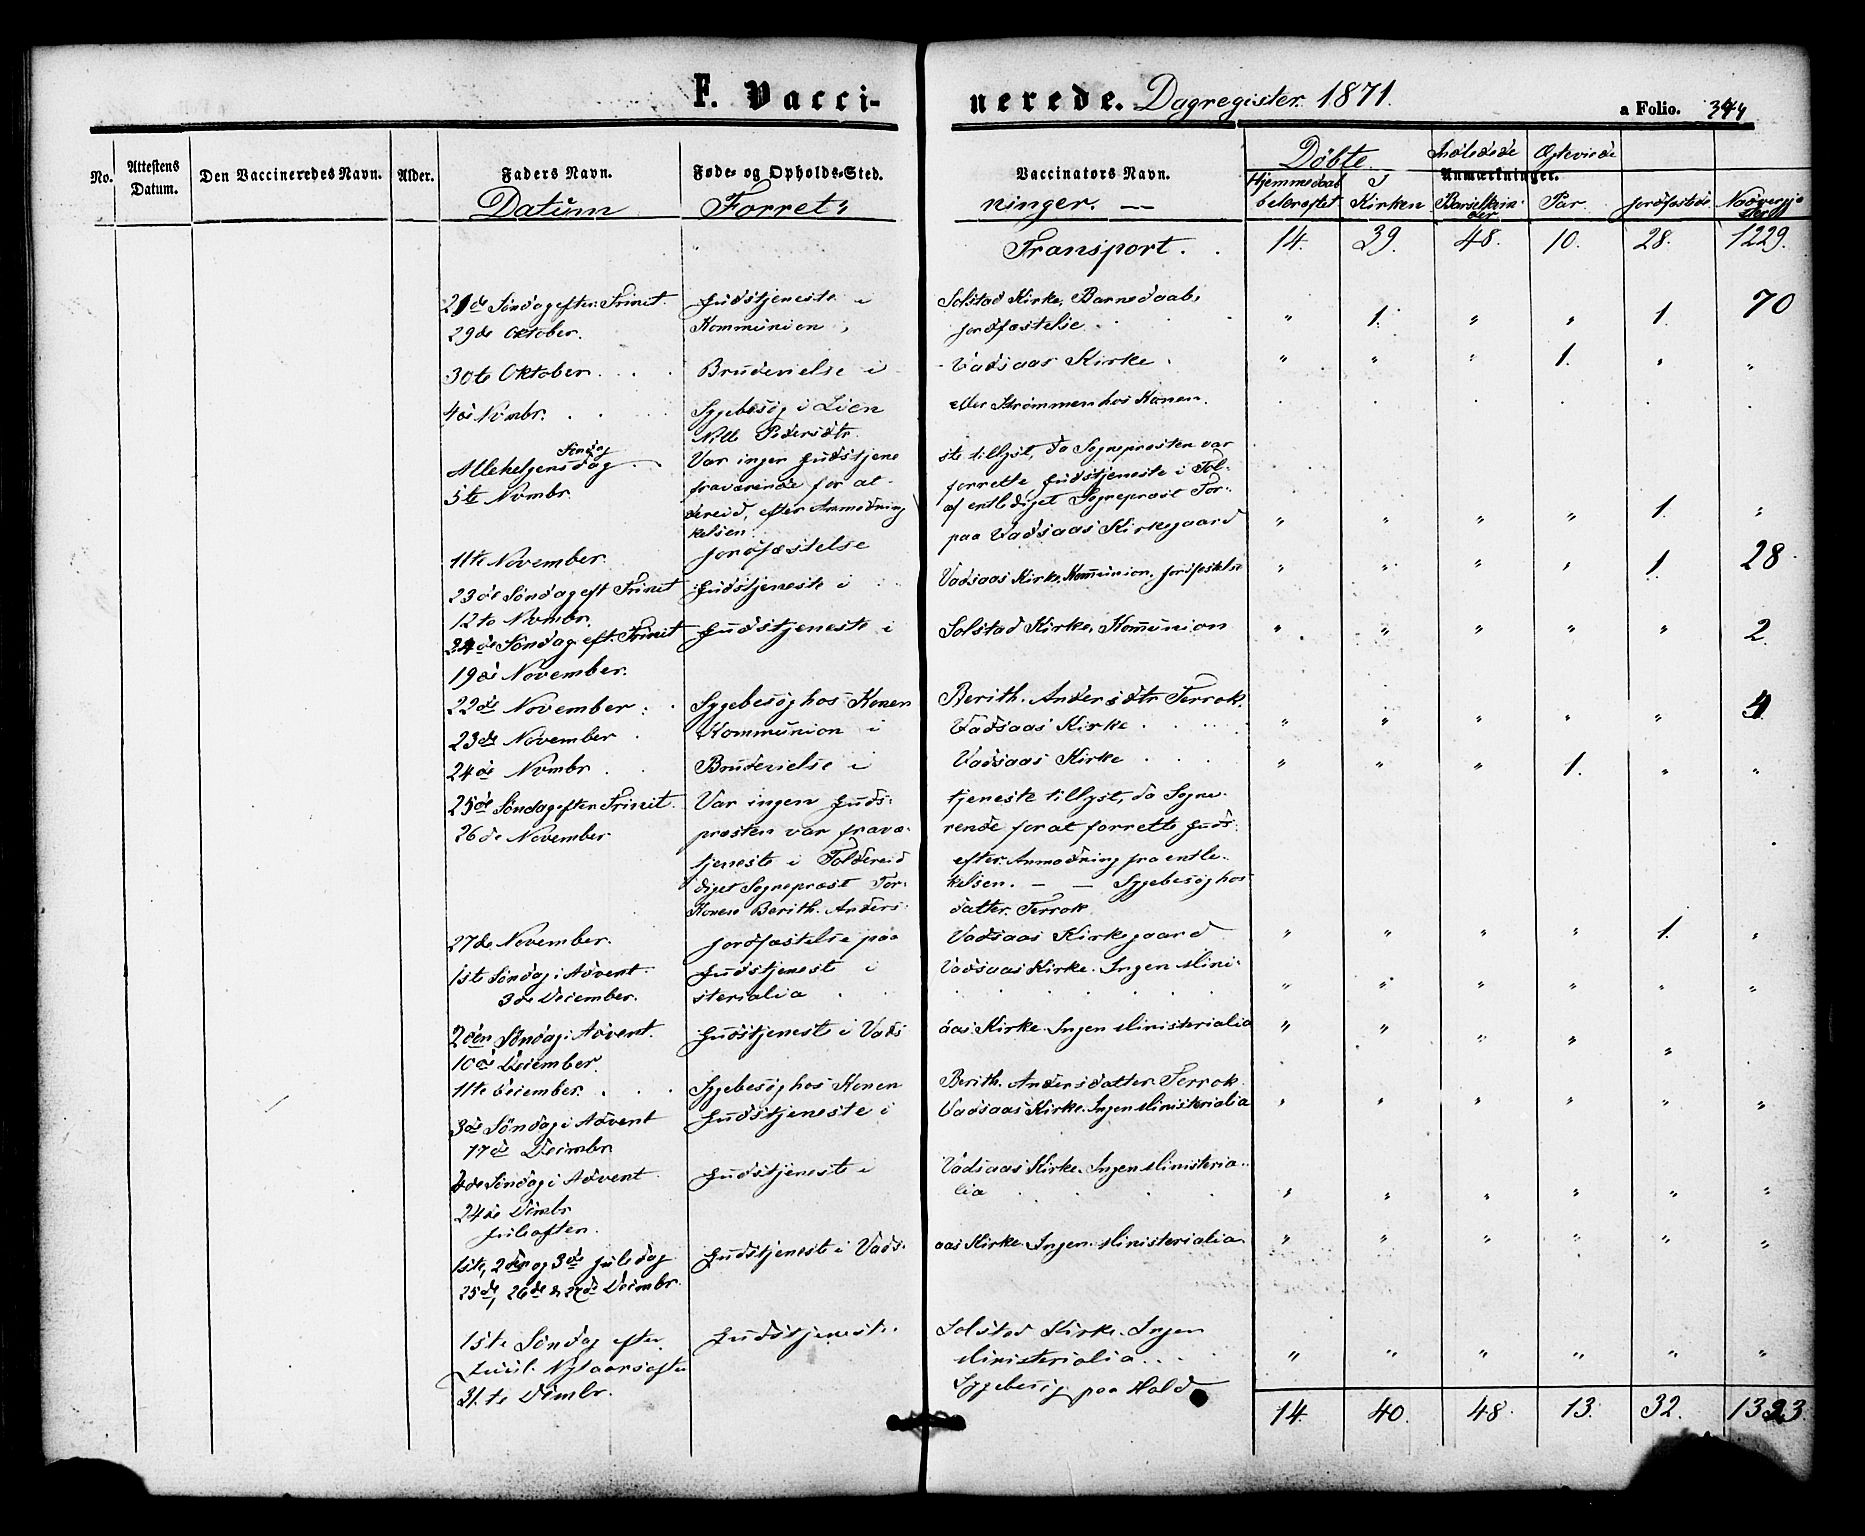 F. Vacci- nerede. Dagregister 1871. a Folio. 344
No. Attestens Datum. Den Vaccineredes Navn. Alder. Faders Navn. Føde- og Opholds-Sted. Vaccinators Navn. Anmærkninger.
Døbte Indledede Ægteviede
Datum Forret: ninger. — Hjemmedaab bekræftet I Kirken Barselkvinder Par. Jordfæstede. Nadvergjester
Transport . . 14. 39. 48. 10. 28. 1229.
21de Søndag efter Trinit. Gudstjeneste i Solstad Kirke, Barnedaab,
29de Oktober. Kommunion, Jordfæstelse . . " 1. " " 1. 70
30te Oktober . . . Brudevielse i Vadsaas Kirke . " " " 1. " "
4de Novmbr. . . Sygebesøg i Lien eller Strømmen hos Konen
Nille Pedersdtr.
Allehelgensdag Søndag Var ingen Gudstjene ste tillyst, da Sognepræsten var
5te Novmbr. fraværende for at forrette Gudstjeneste i Fol-
dereid, efter Anmodning af entlediget Sognepræst Tor-
kelsen.
11te November. Jordfæstelse paa Vadsaas Kirkegaard " " " " 1. "
23de Søndag eft Trinit Gudstjeneste i Vadsaas Kirke, Kommunion, Jordfæstelse " " " " 1. 28.
12te Novmbr.
24de Søndag eft. Trinit Gudstjeneste i Solstad Kirke, Kommunion " " " " " 2.
19de November.
22de November . . Sygebesøg hos Konen Berith. Andersdtr Terrok.
23de November . Kommunion i Vadsaas Kirke . . . . " " " " " 4
24de Novmbr . . Brudevielse i Vadsaas Kirke . . . " " " 1. " "
25de Søndag efter Trinit. Var ingen Guds- tjeneste tillyst, da Sogne-
26de November præsten var fravæ- rende for at forrette Guds-
tjeneste i Foldereid efter Anmodning fra entle-
diget Sognepræst Tor- kelsen. — — Sygebesøg hos
Konen Berith. Anders- datter Terrok
27de November. Jordfæstelse paa Vadsaas Kirkegaard " " " " 1. "
1ste Søndag i Advent Gudstjenest i Vadsaas Kirke. Ingen Mini-
3de December. sterialia . . . . . . . " " " " " "
2den Søndag i Advent. Gudstjeneste i Vads aas Kirke. Ingen Ministerialia " " " " "
10de December.
11te December. . . Sygebesøg hos Konen Berith. Andersdatter Terrok
3de Søndag i Advent Gudstjeneste i Vadsaas Kirke. Ingen Ministerialia " " " " " "
17de Decmbr
4de Søndag i Advent Gudstjeneste i Vadsaas Kirke. Ingen Ministeria-
24de Decmbr lia . . . . " " " " " "
Juleaften.
1ste, 2den og 3de Juledag Gudstjeneste i Vads- aas Kirke Ingen Ministerialia. " " " " " "
25de, 26de & 27de Decmbr.
1ste Søndag efter Gudstjeneste. Solstad Kirke. Ingen
Juul. Nytaarsaften Ministerialia. . . . " " " " " "
31.te Decmbr. Sygebesøg paa Hald
14. 40. 48. 13. 32. 1333.